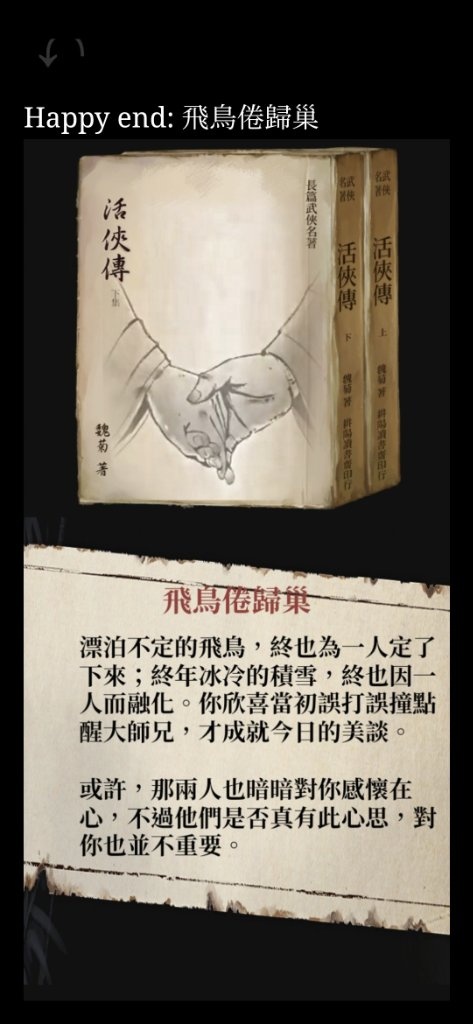 Happy end: 飛鳥倦歸巢
活俠傳
下集
魏菊 著
長篇武俠名著
武俠名著
活俠傳
下
魏菊 著
武俠名著
活俠傳
上
魏菊 著
飛鳥倦歸巢
漂泊不定的飛鳥，終也為一人定了
下來；終年冰冷的積雪，終也因一
人而融化。你欣喜當初誤打誤撞點
醒大師兄，才成就今日的美談。
或許，那兩人也暗暗對你感懷在
心，不過他們是否真有此心思，對
你也並不重要。